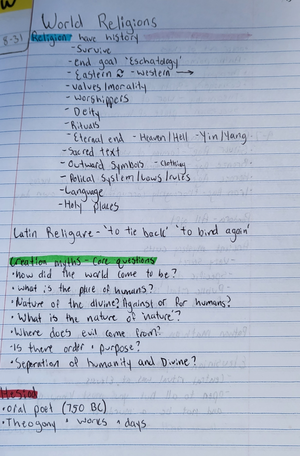 World Religions
8-31 Religion have history
- Survive
- end goal 'Eschatology'
- Eastern & - western →
- values/morality
- worshippers
- Deity
- Rituals
- Eternal end - Heaven/Hell - Yin/Yang
- Sacred text
- Outward Symbols - clothing
- Political System/Laws/rules
- Language
- Holy places
Latin Religare - 'to tie back' 'to bind again'
Creation myths - Core questions
• how did the world come to be?
• what is the place of humans?
• Nature of the divine? Against or for humans?
• What is the nature of 'nature'?
• Where does evil come from?
• Is there order + purpose?
• Seperation of humanity and Divine?
Hesiod
• Oral poet (750 BC)
• Theogony + works + days